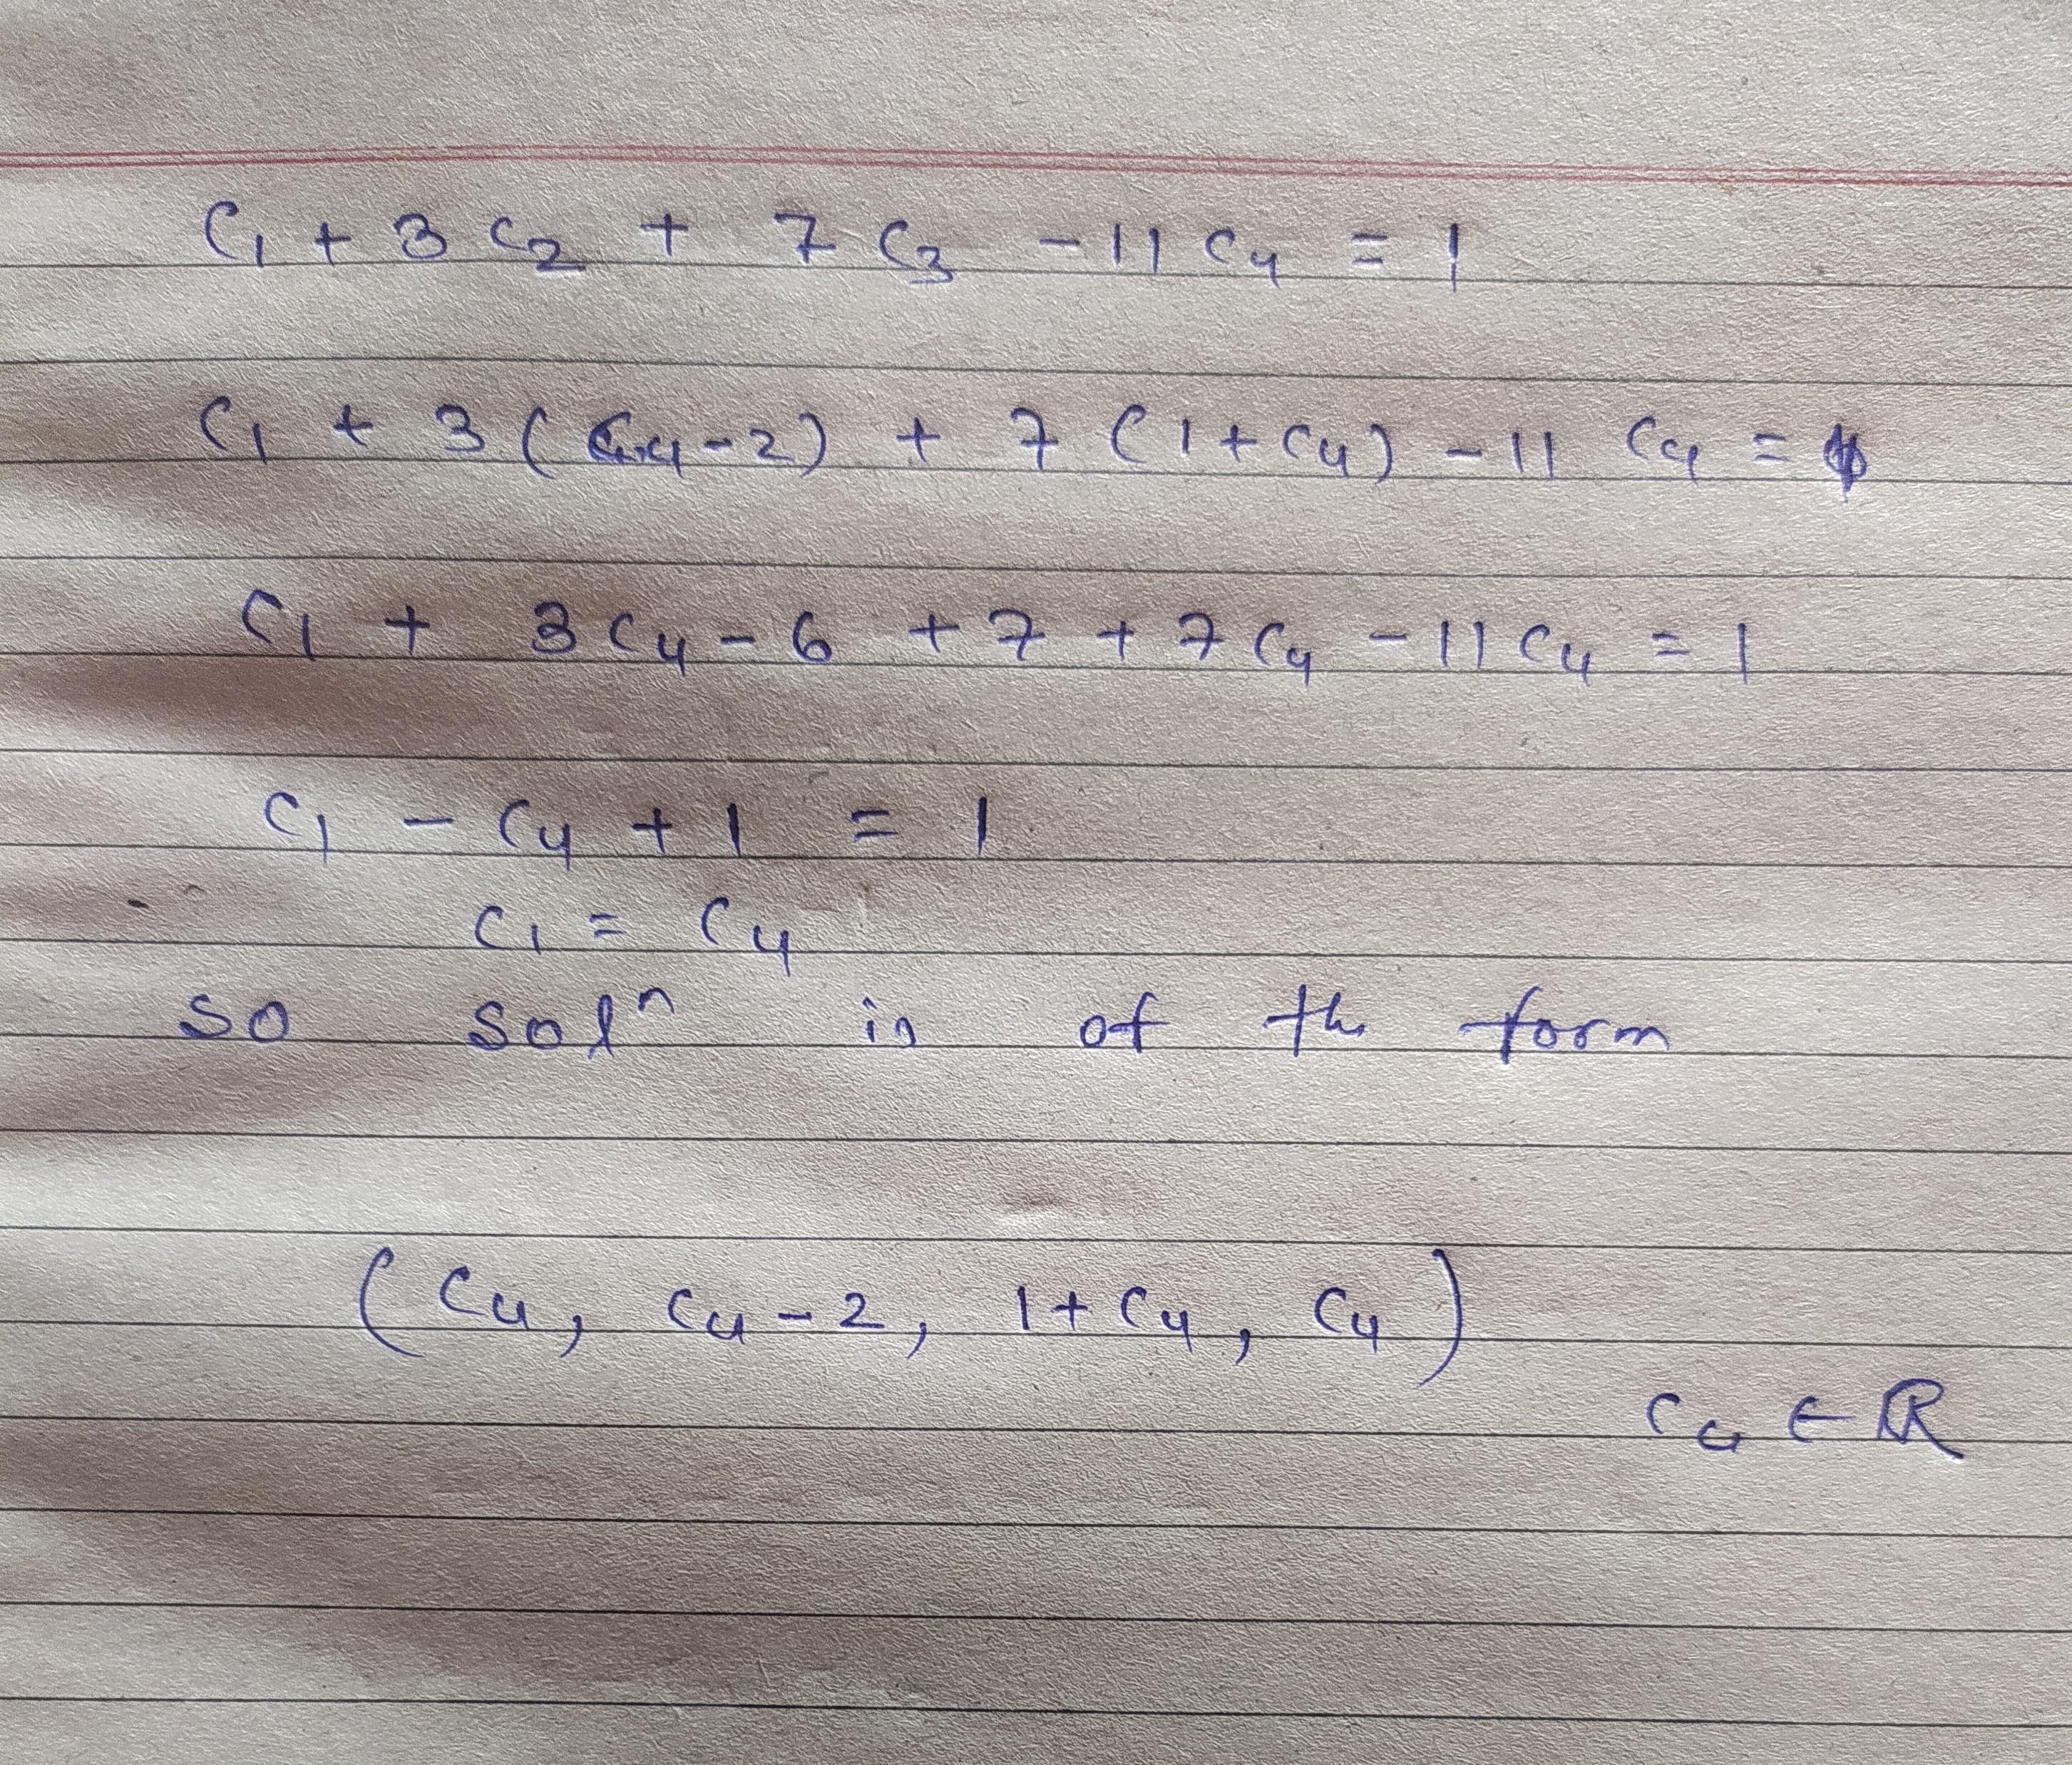 C₁ + 3C₂ + 7C₃ - 11C₄ = 1
C₁ + 3(C₄-2) + 7(1+C₄) - 11C₄ =
C₁ + 3C₄ - 6 + 7 + 7C₄ - 11C₄ = 1
C₁ - C₄ + 1 = 1
C₁ = C₄
so solⁿ is of the form
(C₄, C₄-2, 1+C₄, C₄)
C₄ ∈ ℝ